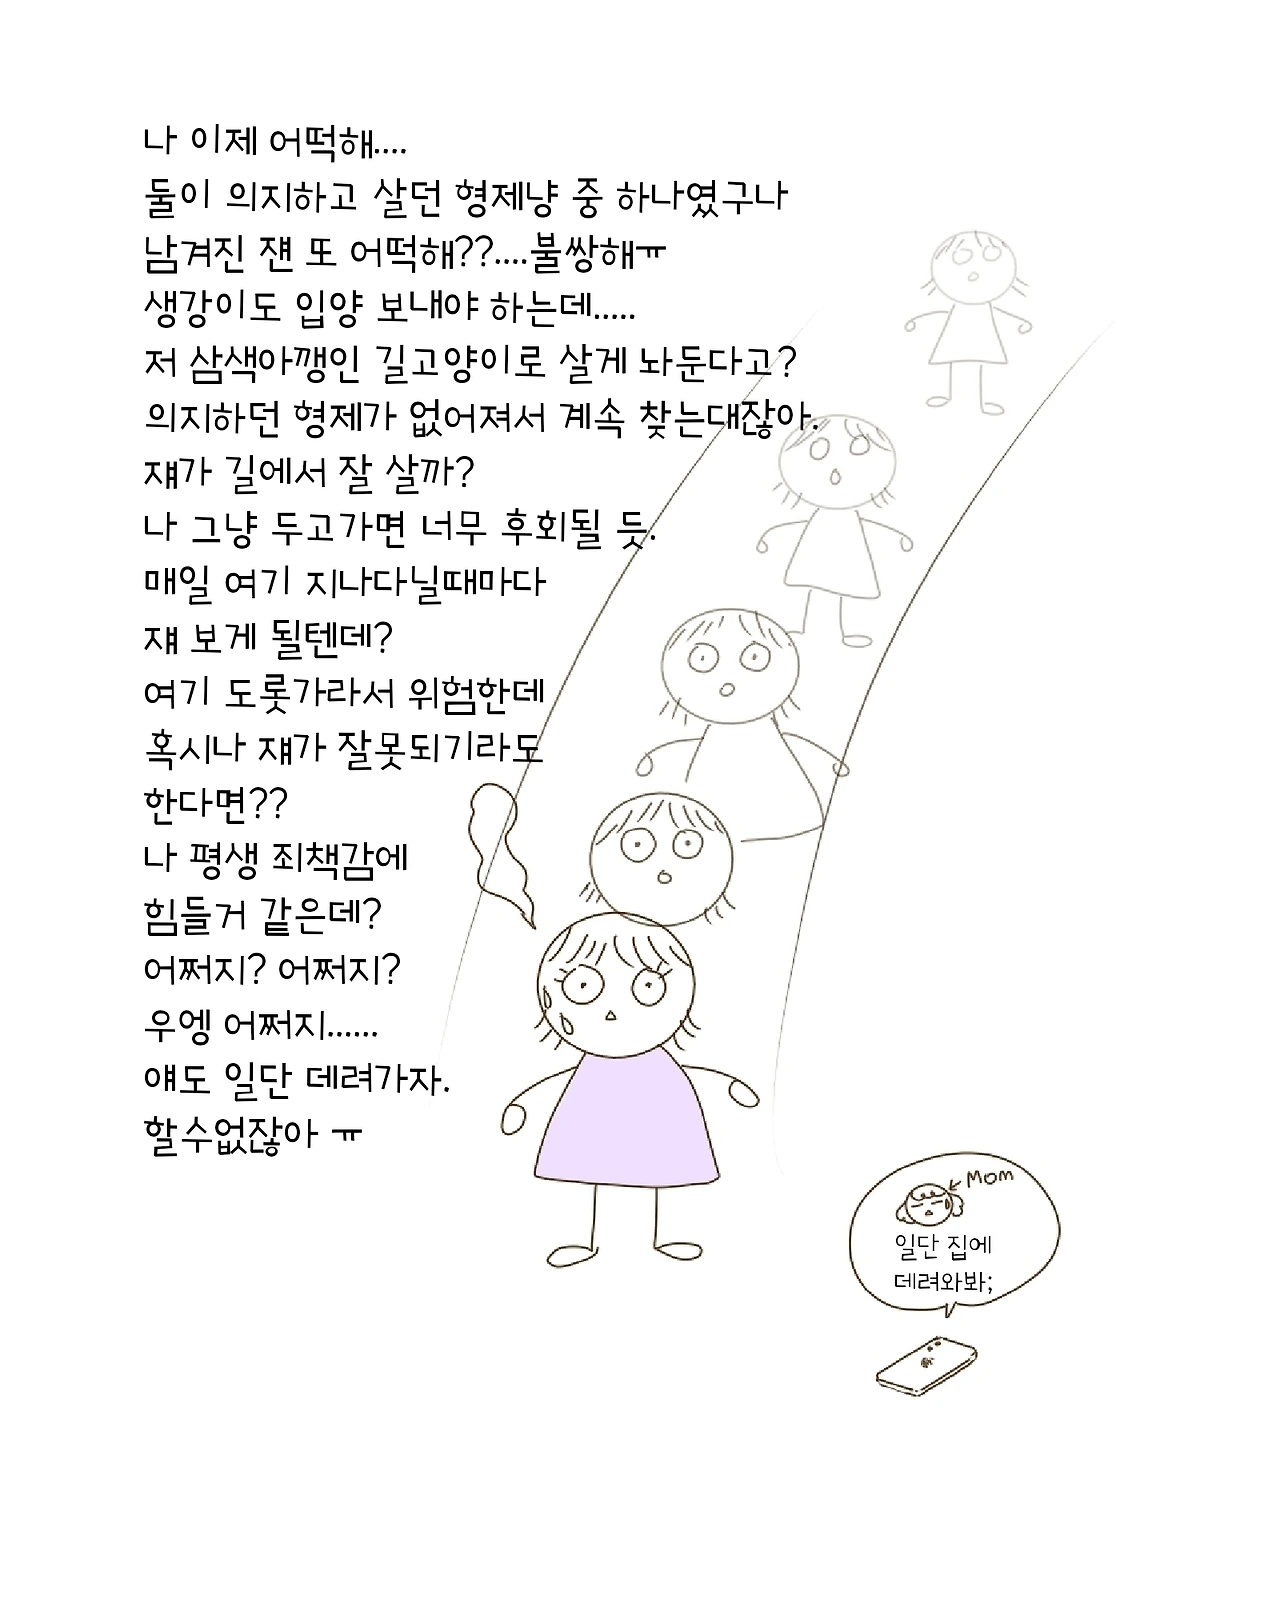 나 이제 어떡해....
둘이 의지하고 살던 형제냥 중 하나였구나
남겨진 쟨 또 어떡해??....불쌍해ㅠ
생강이도 입양 보내야 하는데.....
저 삼색아깽인 길고양이로 살게 놔둔다고?
의지하던 형제가 없어져서 계속 찾는대잖아.
쟤가 길에서 잘 살까?
나 그냥 두고가면 너무 후회될 듯.
매일 여기 지나다닐때마다
쟤 보게 될텐데?
여기 도롯가라서 위험한데
혹시나 쟤가 잘못되기라도
한다면??
나 평생 죄책감에
힘들거 같은데?
어쩌지? 어쩌지?
우엥 어쩌지......
얘도 일단 데려가자.
할수없잖아 ㅠ
Mom
일단 집에
데려와봐;